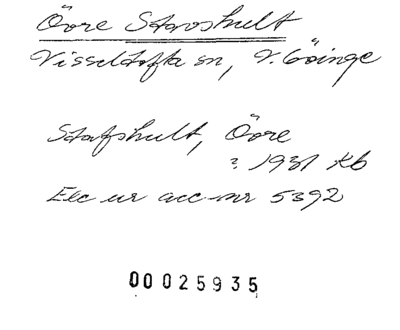 Övre Stavshult
Visseltofta sn, V. Göinge
Stafshult, Övre
? 1931 Kb
Exc ur acc-nr 5392
00025935